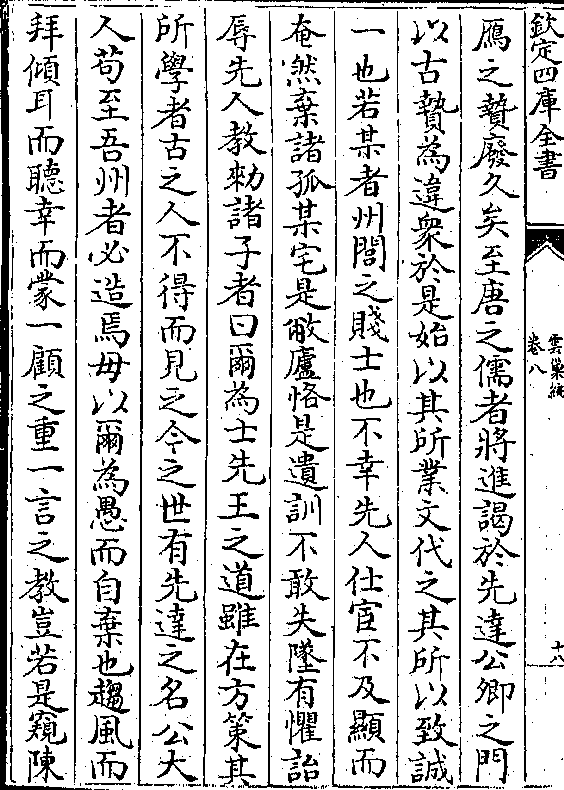 欽定四庫全書
雲巢編
卷八
十八
鴈之贄廢久矣至唐之儒者將進謁於先達公卿之門
以古贄為違衆於是始以其所業文代之其所以致誠
一也若某者州閭之賤士也不幸先人仕宦不及顯而
奄然棄諸孤某宅是敝廬恪是遺訓不敢失墜有懼詒
辱先人教勑諸子者曰爾為士先王之道雖在方策其
所學者古之人不得而見之今之世有先達之名公大
人苟至吾州者必造焉毋以爾為愚而自棄也趨風而
拜傾耳而聽幸而蒙一顧之重一言之教豈若是窺陳